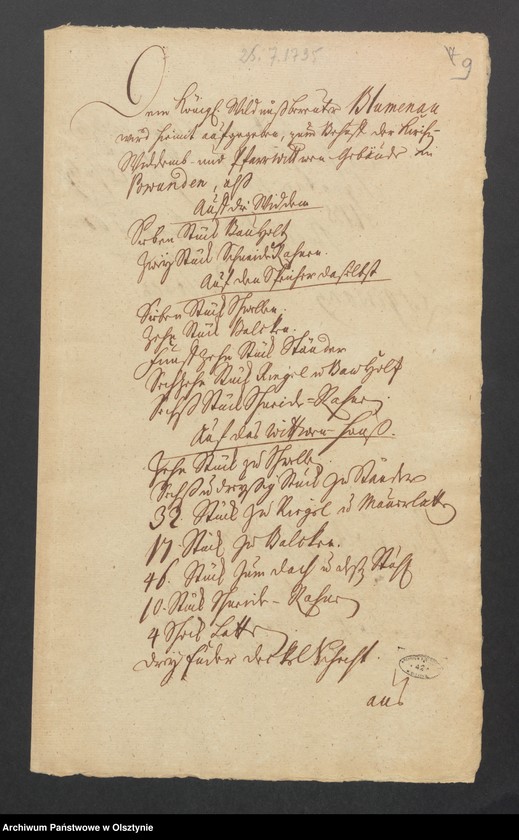 25.7.1795
9
Dem Königl. Wildnußbereuter Blumenau
wird hiemit aufgegeben, zum Behuf der Kirch-
Widdems- und Pfarrwittwen-Gebäude zu
, als
Auf die Widdem
Sieben Stück Bauholtz
Zwey Stück Schneide Rahnen.
Auf den Speicher daselbst
Sieben Stück Schwellen.
Zehn Stück Balcken.
Fünffzehn Stück Ständer
Sechzehn Stück Riegel u Bauholtz
Sechs Stück Schneide-Rahnen.
Auf das Wittwen Hauß.
Zehn Stück zu Schwellen
Sechs u dreyßig Stück zu Ständer
32 Stück zu Riegel u Mauerlatten
17. Stück zu Balcken.
46. Stück zum Dach u
10. Stück Schneide-Rahnen
4 Schock Latten
drey Fuder
aus
42
Archiwum Państwowe w Olsztynie